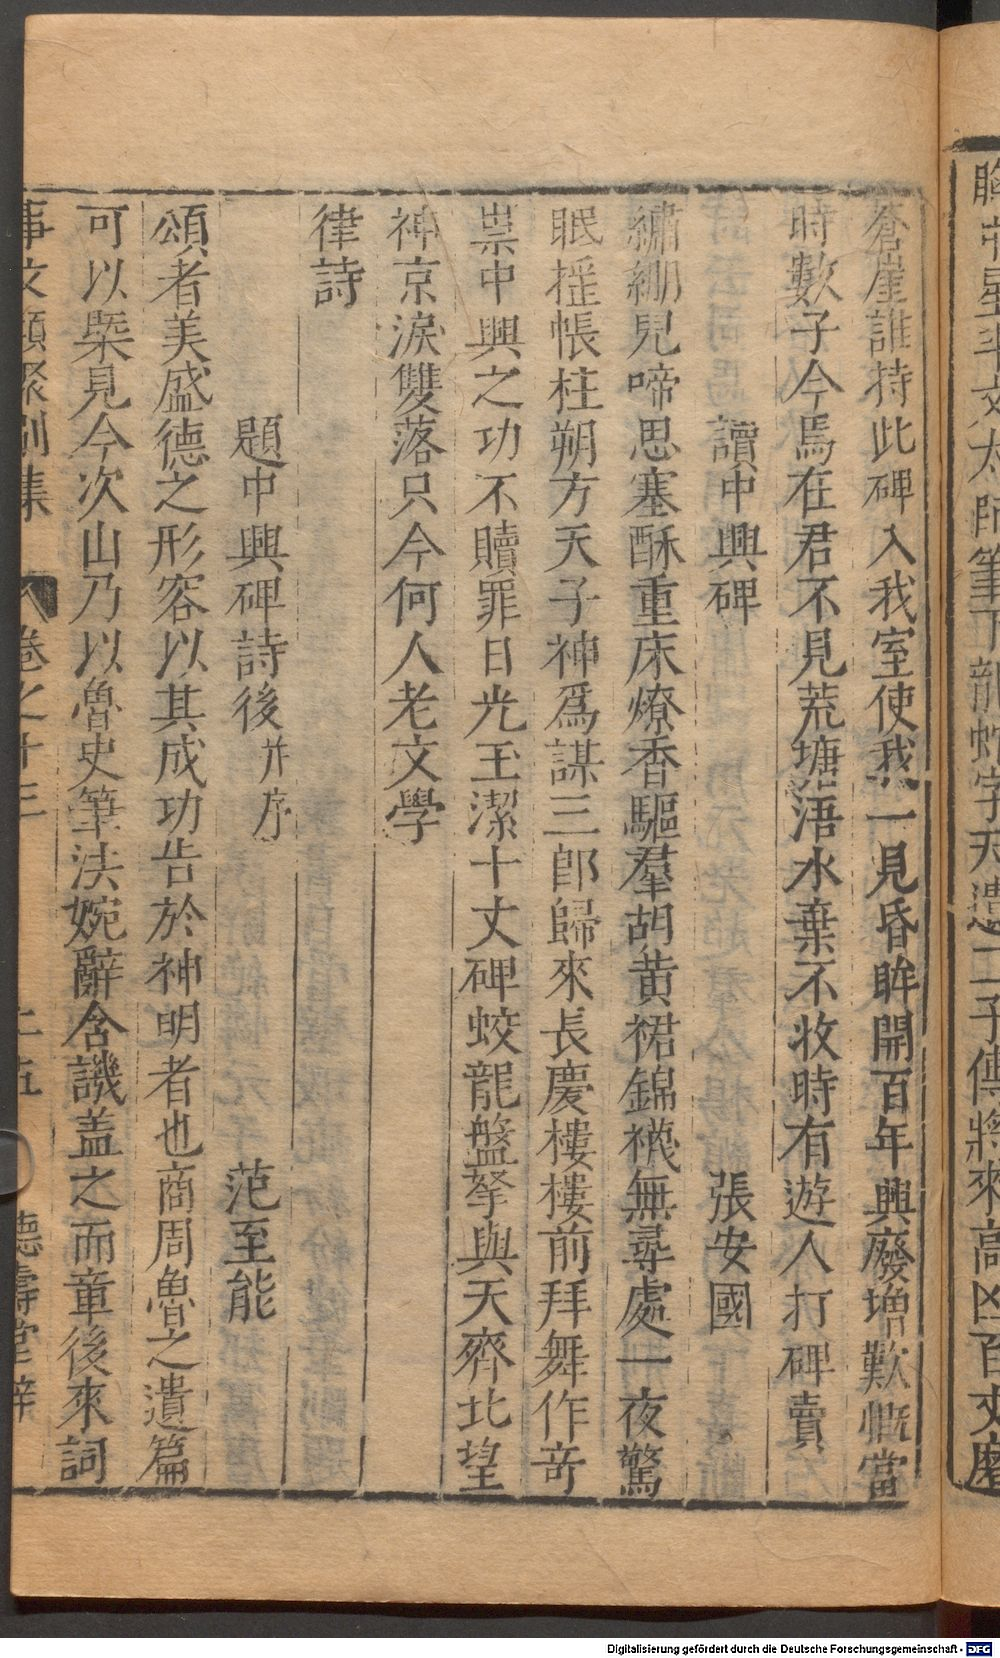 蒼崖誰持此碑入我室使我一見昏眸開百年興廢增歎慨當
時數子今焉在君不見荒塘浯水棄不收時有遊人打碑賣
讀中興碑　張安國
繡綳兒啼思塞酥重床燎香驅羣胡黄裙錦襪無尋處一夜驚
眠揺帳柱朔方天子神爲謀三郎歸來長慶樓樓前拜舞作竒
祟中興之功不贖罪日光玉潔十丈碑蛟龍盤拏與天齊北望
神京淚雙落只今何人老文學
律詩
題中興碑詩後并序　范至能
頌者美盛德之形容以其成功告於神明者也商周魯之遺篇
可以槩見今次山乃以魯史筆法婉辭含譏盖之而章後來詞
事文類聚別集　卷之十三　十五　德壽堂梓
Digitalisierung gefördert durch die Deutsche Forschungsgemeinschaft - DFG